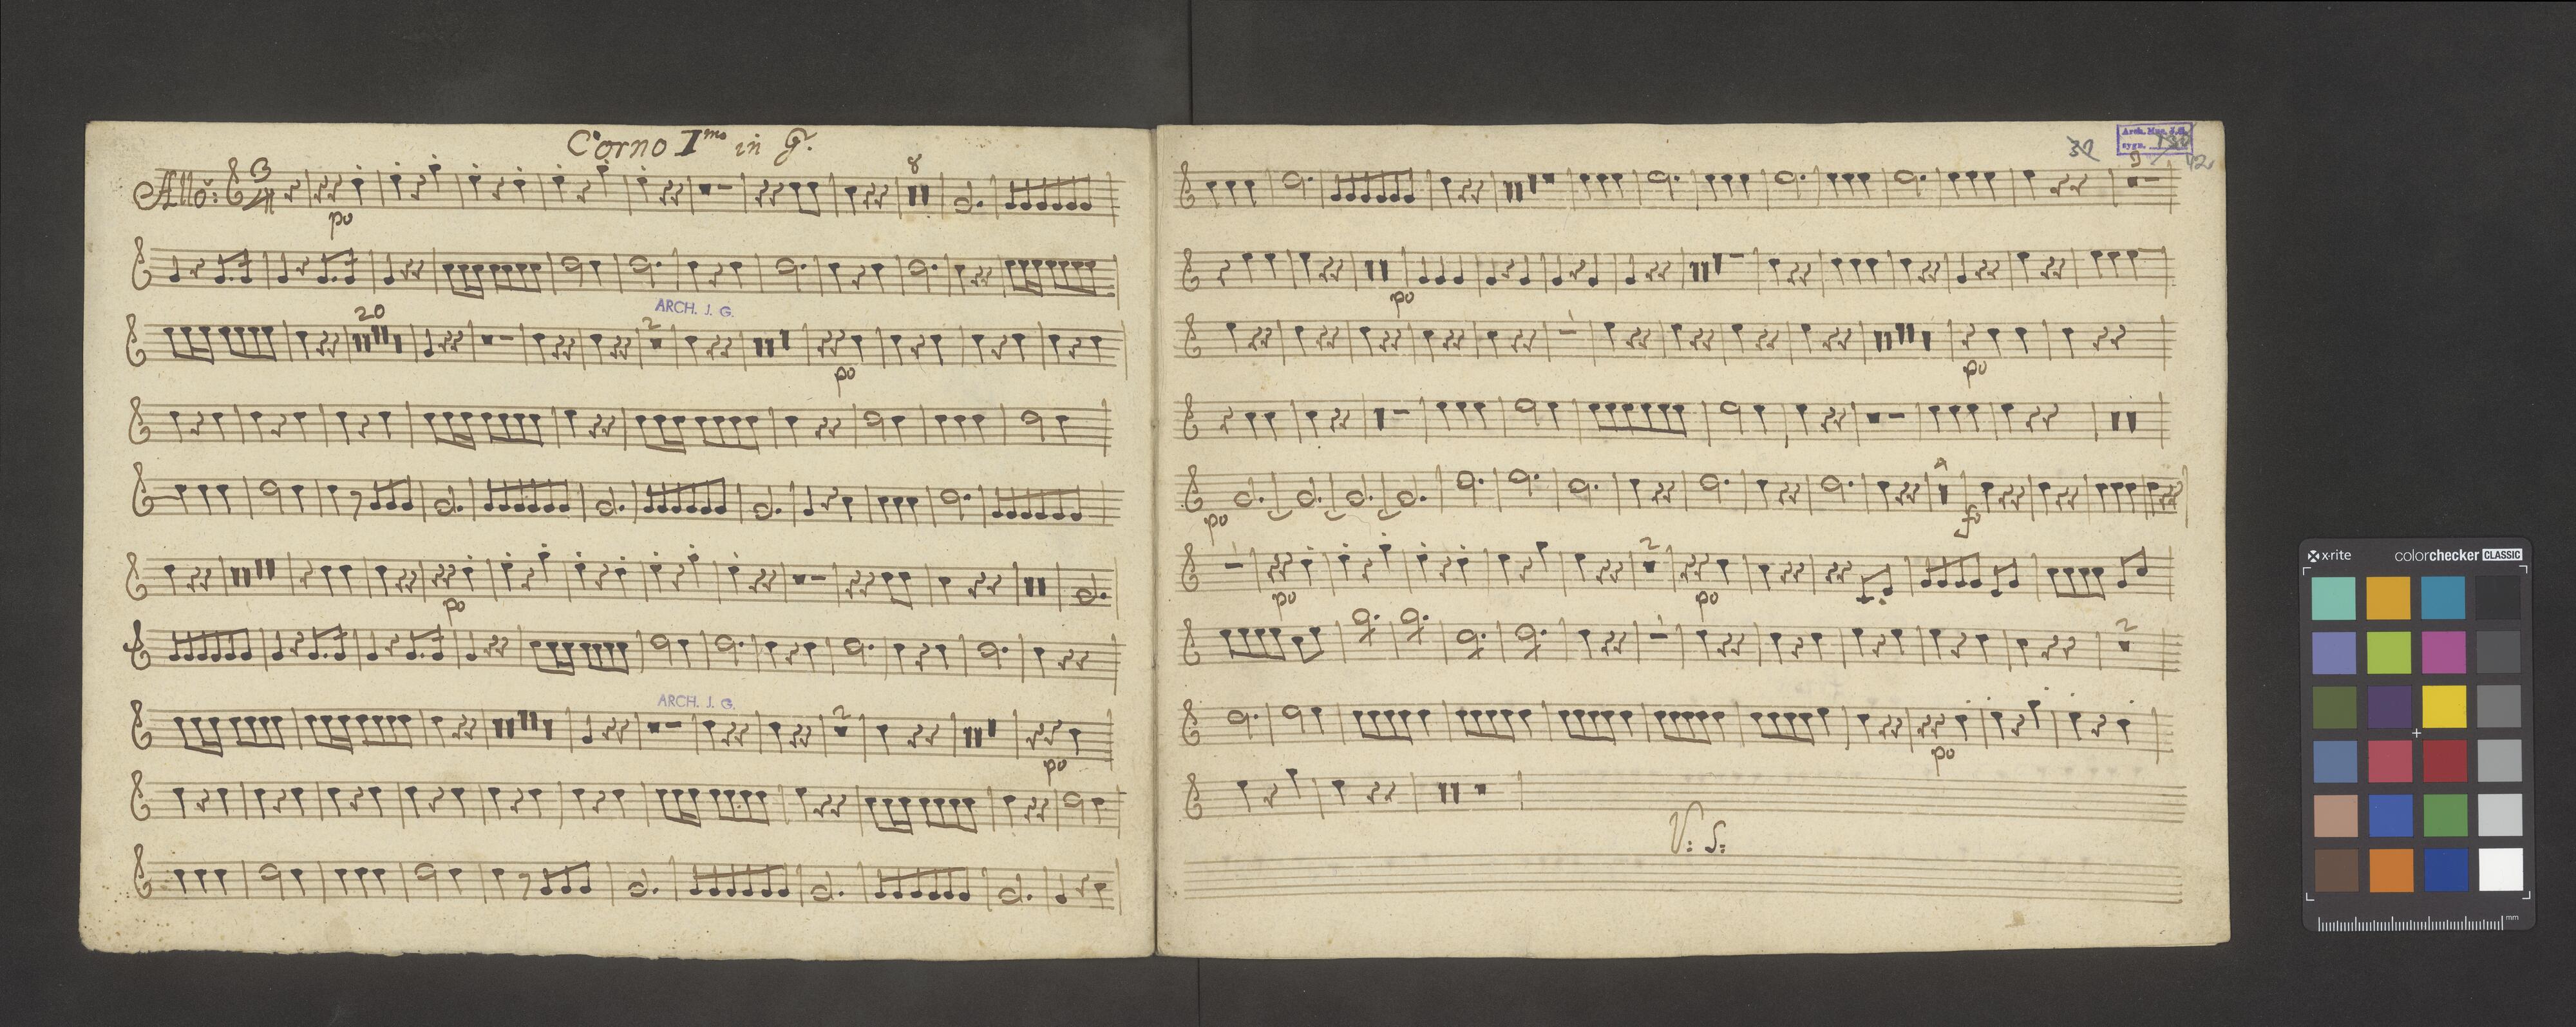 Corno Imo in G.
Allo: 3/4
8
po
ARCH. J. G.
20
2
po
po
ARCH. J. G.
2
po
32
Arch. Mus. J. G.
sygn.
po
po
po
fo
2
po
po
2
po
V: S:
x-rite
colorchecker CLASSIC
mm